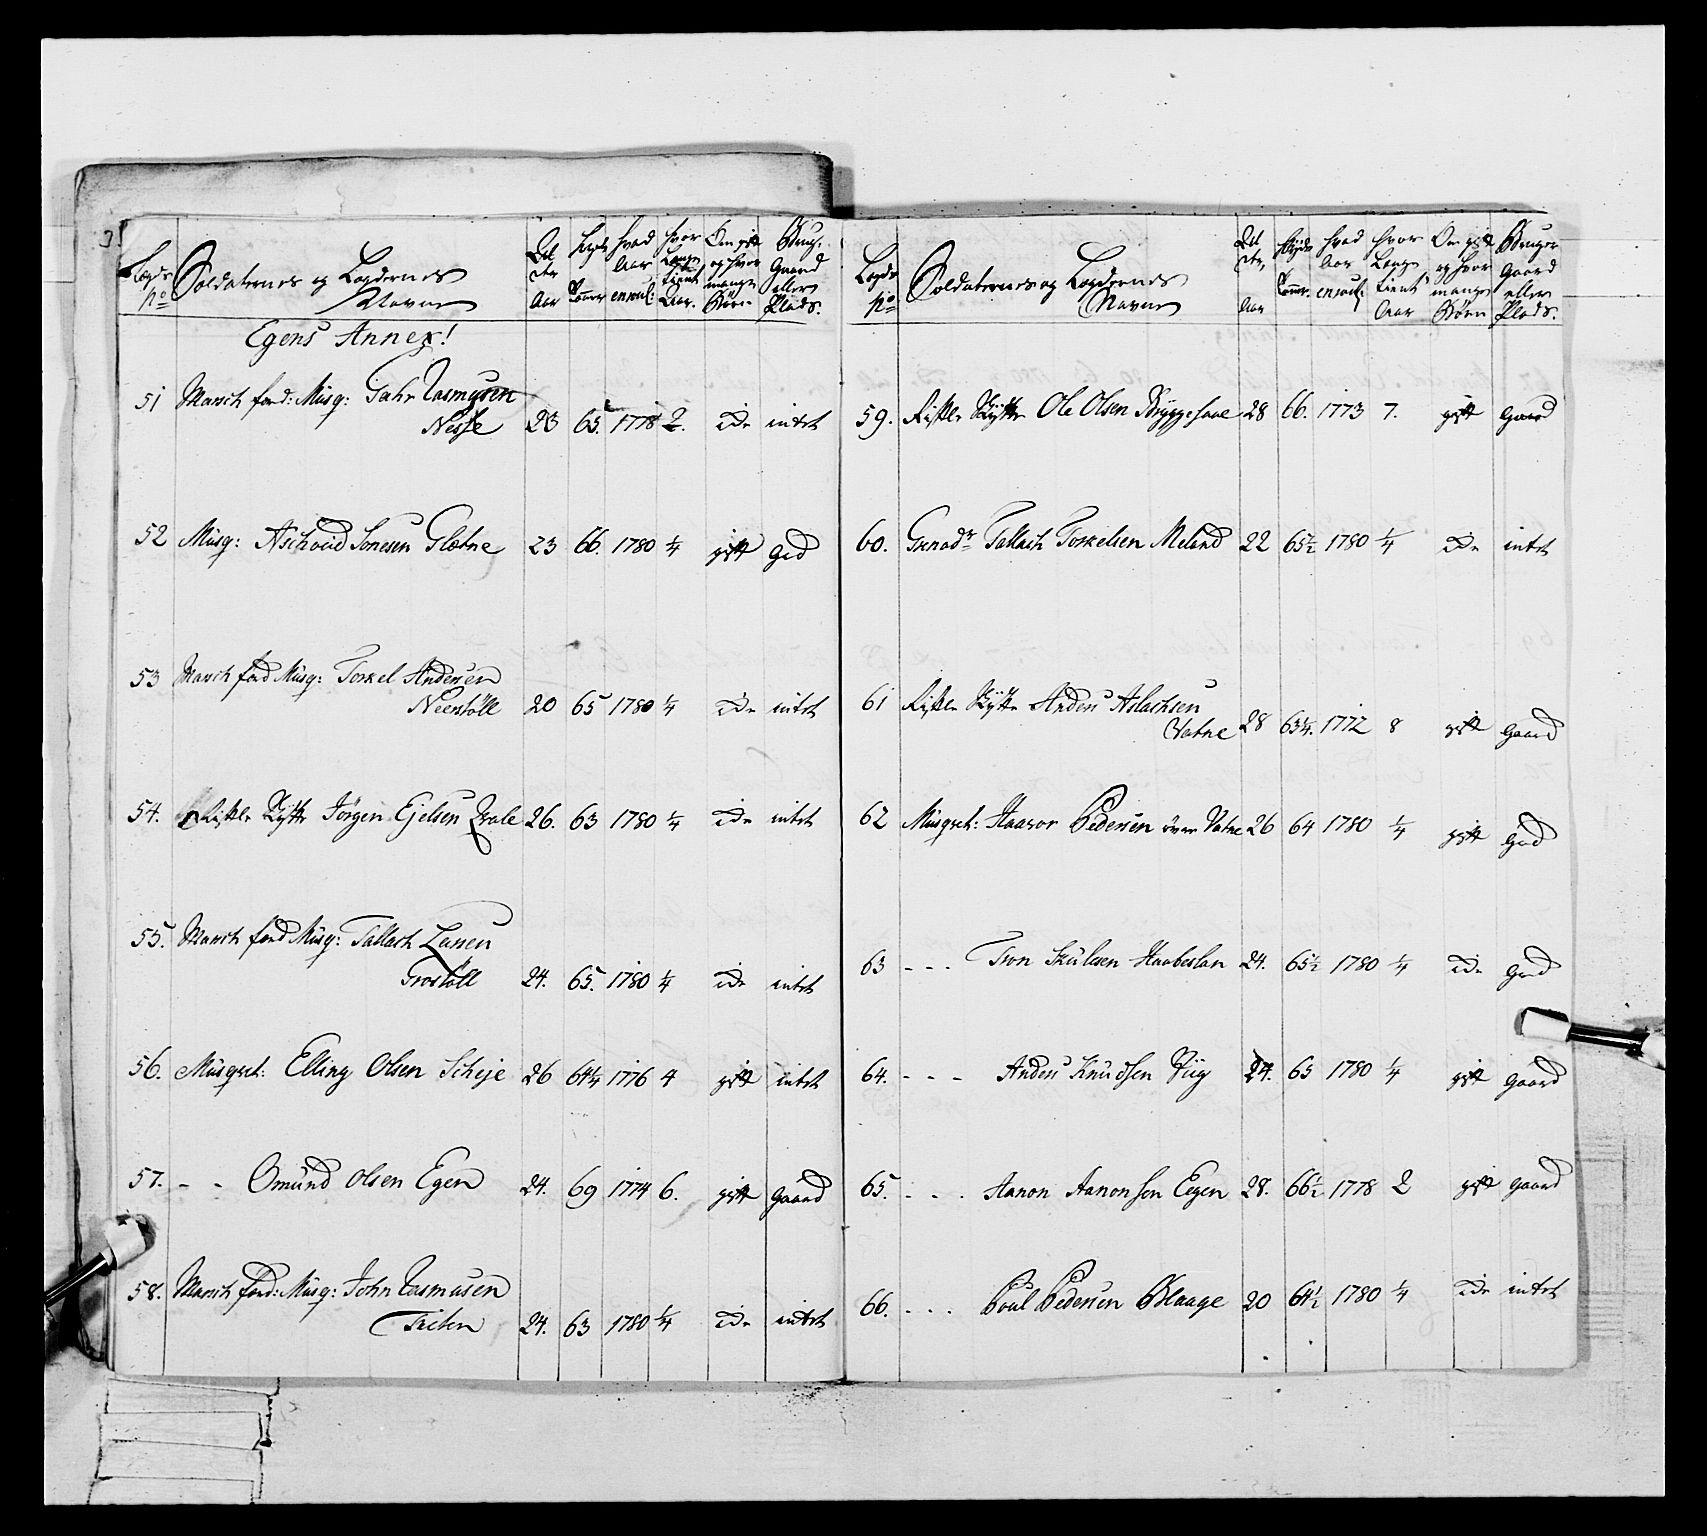 Lægds No
Soldaternes og Lægdernes Navne
Aar
Tommer
hvad Aar enroul:
hvor Længe tient Aar.
Om gift og hvor mange Børn
Brug: Gaard eller Plads.
Egens Annex!
51 March færd: Musq: Gahr Rasmusen
Nesse 23 65. 1778 2. ide intet
52 Musq: Aschoud Tonesen Glætne 23 66. 1780 1/4 gift grd
53 March færd Musq: Torkel Andersen
Neenstöll 20 65 1780 1/4 ide intet
54. Riffle Skytt Jörgen Ejelsen Qvale 26. 63 1780 1/4 ide intet
55. March færd Musq: Tallach Larsen
Grostöll 24. 65. 1780 1/4 ide intet
56. Musqvet: Elling Olsen Scheje 26 64 1/4 1776 4 gift intet
57. - - Omund Olsen Egen 24. 69 1774 6. gift gaard
58. March færd: Musq: John Rasmusen
Triten 24. 63 1780 1/4 ide intet
Lægds No
Soldaternes og Lægdernes Navne
Aar
Høyde Tommer.
hvad Aar enroul:
hvor Længe tient Aar
Om gift og hvor mange Børn
Bruger Gaard eller Plads.
59. Riffle Skytte Ole Olsen Bryggesaae 28 66. 1773 7. gift gaard
60. Grenadr Tallach Torkelsen Meland 22 65 1/2 1780 1/4 ide intet
61 Riffle Skytte Anders Aslachsen
Vatne 28 63 1/4. 1772 8 gift gaard
62 Musqvet: Haavor Pedersen över Vatne 26 64 1780 1/4 gift grd
63 - - - Tron Skulesen Haabeslan 24. 65 1/2 1780 1/4 ide grd
64. - - - Anders Knudsen Riig 24. 63 1780 1/4 gift gaard
65. - - - Aanon Aanonsen Eegen 28. 66 1/2 1778 2 gift gaard
66. - - - Poul Pedersen Blaage 20 64 1/2 1780 1/4 ide intet